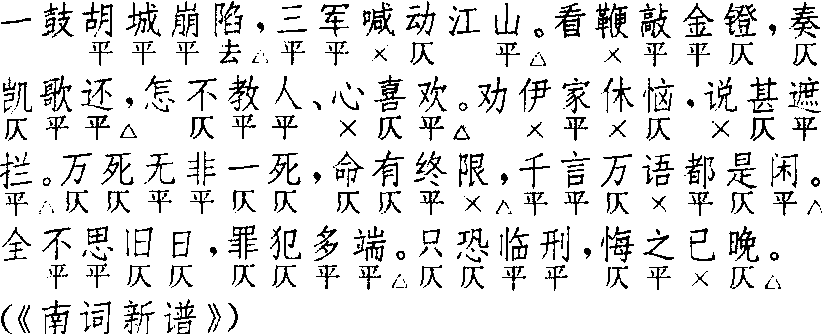 一鼓胡城崩陷，三军喊动江山。看鞭敲金镫，奏
平平平去△平平×仄 平△ ×平平仄 仄
凯歌还，怎不教人、心喜欢。劝伊家休恼，说甚遮
仄平平△ 仄平平 ×仄平△ ×平×仄 ×仄平
拦。万死无非一死，命有终限，千言万语都是闲。
平△仄仄平平仄仄 仄仄平×△平平仄×平仄平△
全不思旧日，罪犯多端。只恐临刑，悔之已晚。
平平仄仄 仄仄平平△仄仄平平 仄平×仄△
(《南词新谱》)